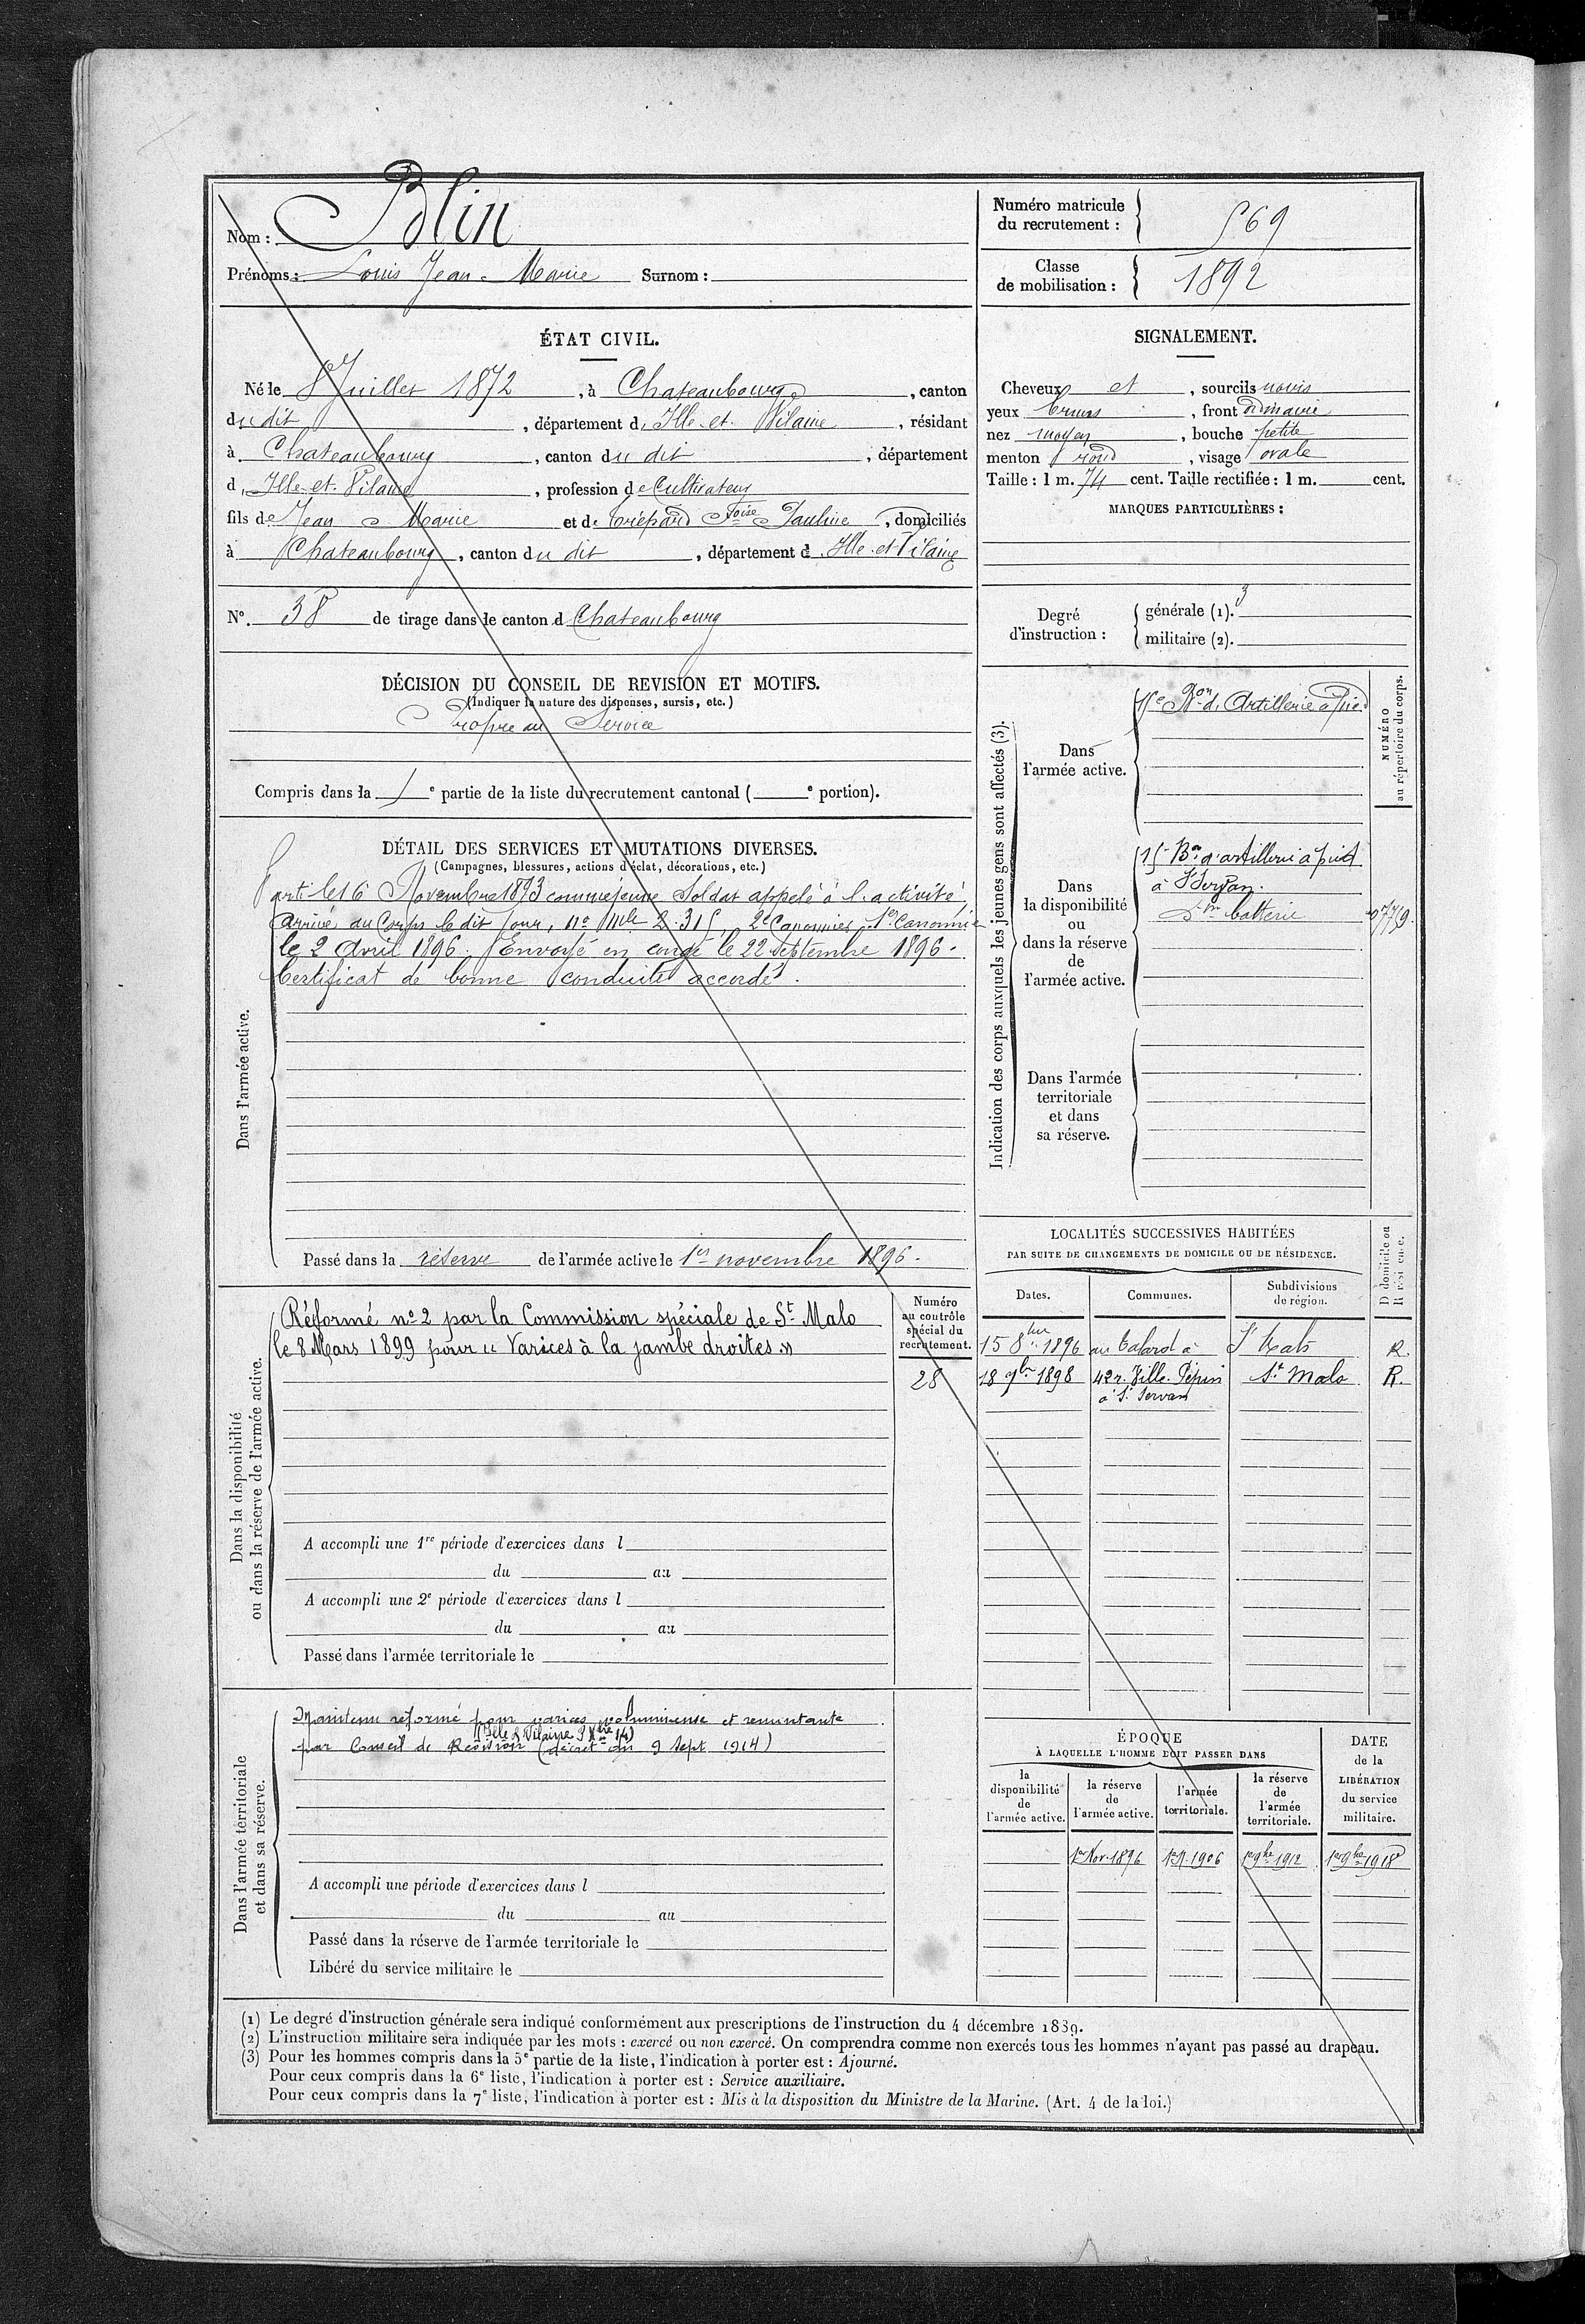 Nom : Blin
Prénoms : Louis Jean-Marie Surnom :
Numéro matricule du recrutement : 569
Classe de mobilisation : 1892
ÉTAT CIVIL.
Né le 8 Juillet 1872, à Chateaubourg, canton
du dit, département d'Ille-et-Vilaine, résidant
à Chateaubourg, canton du dit, département
d'Ille-et-Vilaine, profession de Cultivateur
fils de Jean Marie et de Foise Pauline, domiciliés
à Chateaubourg, canton du dit, département d'Ille-et-Vilaine
N° 38 de tirage dans le canton d Chateaubourg
SIGNALEMENT.
Cheveux et, sourcils noirs
yeux bruns, front ordinaire
nez moyen, bouche petite
menton rond, visage ovale
Taille : 1 m. 74 cent. Taille rectifiée : 1 m. cent.
MARQUES PARTICULIÈRES :
Degré d'instruction :
générale (1). 3
militaire (2).
DÉCISION DU CONSEIL DE REVISION ET MOTIFS.
(Indiquer la nature des dispenses, sursis, etc.)
Propre au Service
Compris dans la 1e partie de la liste du recrutement cantonal ( e portion).
DÉTAIL DES SERVICES ET MUTATIONS DIVERSES.
(Campagnes, blessures, actions d'éclat, décorations, etc.)
Dans l'armée active.
Parti le 16 Novembre 1893 comme jeune Soldat appelé à l'activité,
Arrivé au Corps le dit jour, no mle 2.315, 2e Canonnier, 1er Canonnier
le 2 Avril 1896. Envoyé en congé le 22 septembre 1896.
Certificat de bonne conduite accordé.
Passé dans la réserve de l'armée active le 1er novembre 1896.
Indication des corps auxquels les jeunes gens sont affectés (3).
NUMÉRO au répertoire du corps.
Dans l'armée active.
15e Bon d'Artillerie à pied
Dans la disponibilité ou dans la réserve de l'armée active.
15 Bon d'artillerie à pied
à St Servan.
batterie
Dans l'armée territoriale et dans sa réserve.
Dans la disponibilité ou dans la réserve de l'armée active.
Numéro au contrôle spécial du recrutement.
28
Réformé no 2 par la Commission spéciale de St. Malo
le 8 Mars 1899 pour " Varices à la jambe droite. "
A accompli une 1re période d'exercices dans l
du au
A accompli une 2e période d'exercices dans l
du au
Passé dans l'armée territoriale le
LOCALITÉS SUCCESSIVES HABITÉES
PAR SUITE DE CHANGEMENTS DE DOMICILE OU DE RÉSIDENCE.
Dates. Communes. Subdivisions de région. D domicile ou R résidence.
15 8bre 1896 au Talard à St Malo R.
18 9bre 1898 42 r. Ville-Pépin St Malo R.
à St Servan
Dans l'armée territoriale et dans sa réserve.
Maintenu réformé pour varices volumineuse et remontante
Ille & Vilaine
par Conseil de Révision (décret du 9 Sept. 1914)
A accompli une période d'exercices dans l
du au
Passé dans la réserve de l'armée territoriale le
Libéré du service militaire le
ÉPOQUE
À LAQUELLE L'HOMME DOIT PASSER DANS
la disponibilité de l'armée active.
la réserve de l'armée active.
l'armée territoriale.
la réserve de l'armée territoriale.
DATE de la LIBÉRATION du service militaire.
1er Nov. 1896 1er N. 1906 1er 9bre 1912 1er 9bre 1918
(1) Le degré d'instruction générale sera indiqué conformément aux prescriptions de l'instruction du 4 décembre 1889.
(2) L'instruction militaire sera indiquée par les mots : exercé ou non exercé. On comprendra comme non exercés tous les hommes n'ayant pas passé au drapeau.
(3) Pour les hommes compris dans la 5e partie de la liste, l'indication à porter est : Ajourné.
Pour ceux compris dans la 6e liste, l'indication à porter est : Service auxiliaire.
Pour ceux compris dans la 7e liste, l'indication à porter est : Mis à la disposition du Ministre de la Marine. (Art. 4 de la loi.)